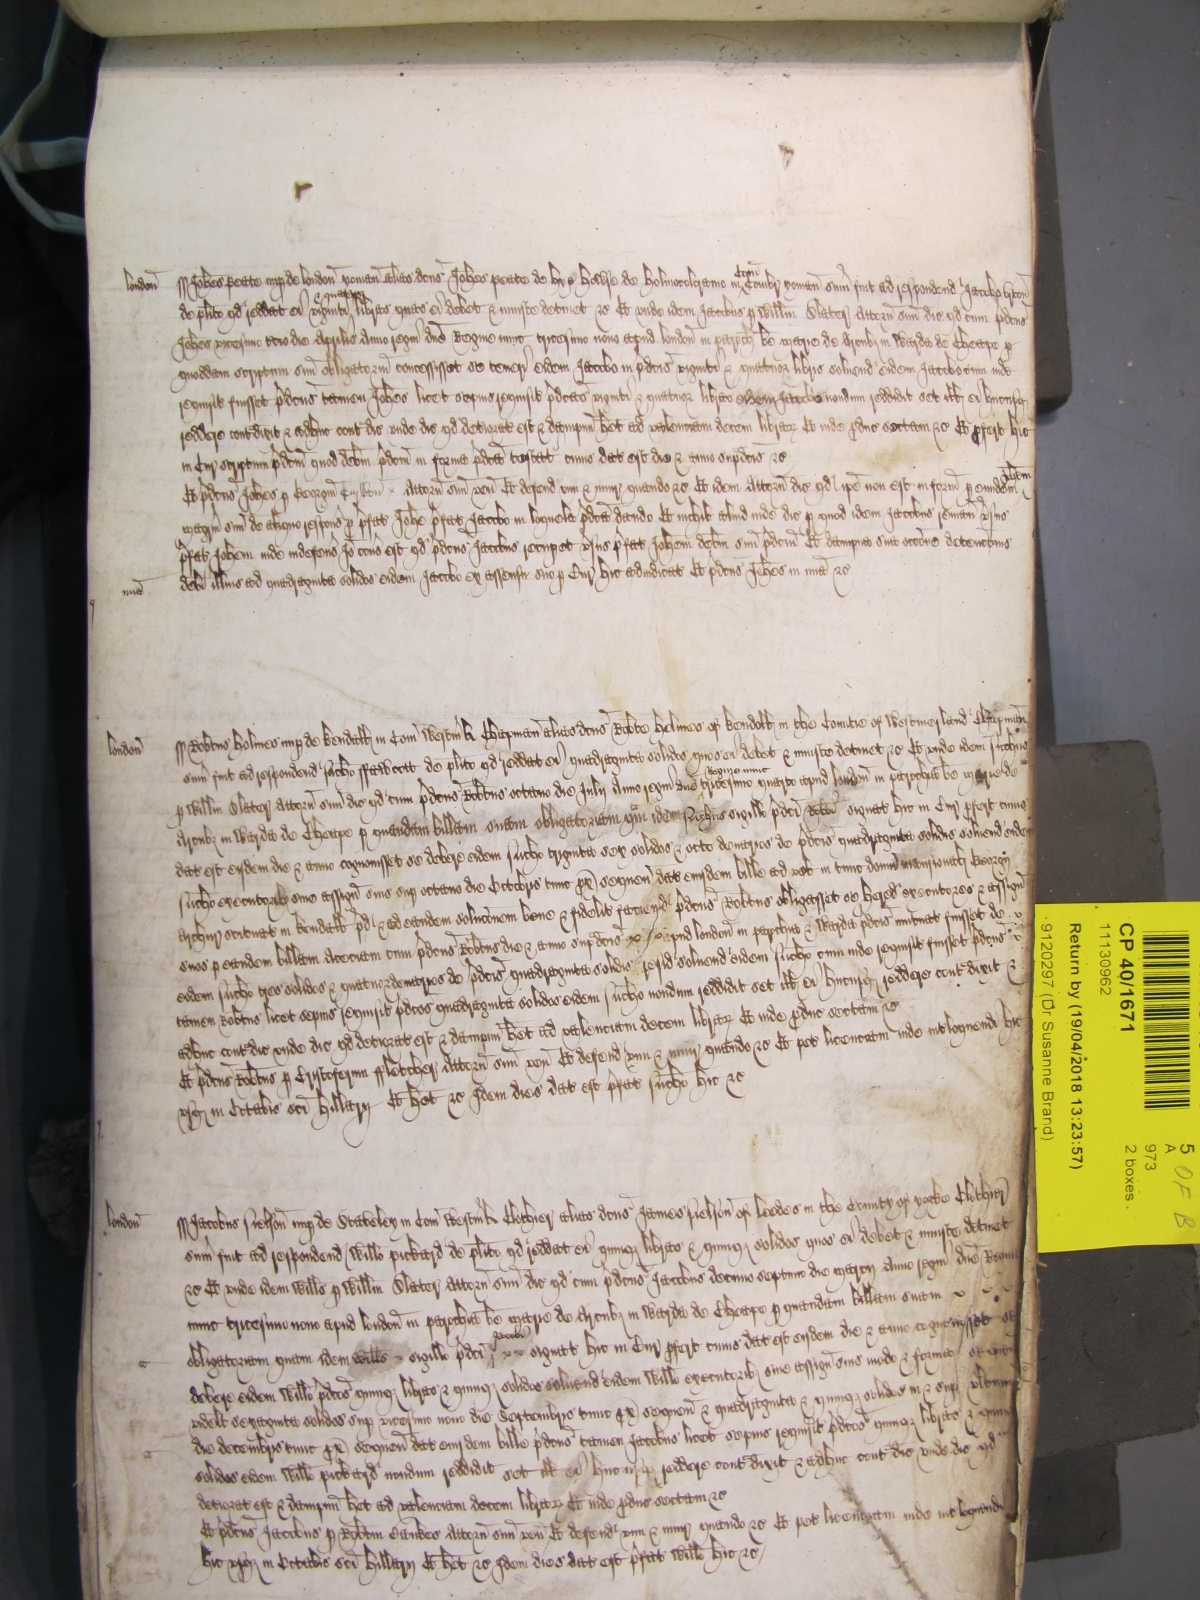 london Johes peate nup de london yoman alias dcus Johes peate de hye house de holmcoltramo in Com Cumbr yoman sum fuit ad respondend Jacobo
de plito qd reddat ei viginti & quatuor libras quas ei debet & iniuste detinet &c Et unde idem Jacobus p Willm Slater Attorn suu dic qd cum pdcus
Johes vicesimo die Aprilis Anno regni dne Regine nunc tricesimo nono apud london in paroch be marie de Arcubz in Warda de Cheape p
quoddam scriptum suu obligatorium concessisset se teneri eidem Jacobo in pdcis viginti & quatuor libris solvend eidem Jacobo cum inde
requisit fuisset pdcus tamen Johes licet sepius requisit pdcas viginti & quatuor libras eidem Jacobo nondum reddidit set ill ei hucusqz
reddere contradixit & adhuc contradic unde dic qd deteriorat est & dampnu het ad valenciam decem librar Et inde pduc sectam &c Et pfert hic
in Cur scriptum pdcm quod debm pdcm in forma pdca testat cuius dat est die & anno supdcis &c
Et pdcus Johes p Georgiu Attorn suu ven Et defend vim & iniur quando &c Et idem Attorn dic qd ipe non est informat p eundem Johem
magrm suu de aliquo respons p pfat Johe pfat Jacobo in loquela pdca dando Et nichil aliud inde dic p quod idem Jacobus reman vsus
pfat Johem inde indefens Jo cons est qd pdcus Jacobus recuperet vsus pfat Johem debm suu pdcm Et dampna sua occone detencionis
mia debi illius ad quadraginta solidos eidem Jacobo ex assensu suo p Cur hic adiudicat Et pdcus Johes in mia &c
london Robtus holmes nup de kendall in Com Westmrl Chapman alias dcus Robte holmes of kendall in the Countie of Westmerland Chapman
sum fuit ad respondend Richo ffawcett de plito qd reddat ei quadraginta solidos quos ei debet & iniuste detinet &c Et unde idem Richus
p Willm Slater Attorn suu dic qd cum pdcus Robtus octavo die Julij Anno regni dne Regine nunc tricesimo quarto apud london in parochia be marie de
Arcubz in Warda de Cheape p quandam billam suam obligatoriam qm idem Richus sigillo pdci Robti signat hic in Cur pfert cuius
dat est eisdem die & anno cognovisset se debere eidem Richo triginta sex solidos & octo denarios de pdcis quadraginta solidis solvend eidem
Richo executoribz sive assign suis sup octavo die Octobris tunc px sequen dat eiusdem bille ad vel in tunc domu mansional Georgij
Archer scituat in kendall pd & ad eandem solucionem bene & fidelit faciend pdcus Robtus obligasset se hered executores & assign
suos p eandem billam Acetiam cum pdcus Robtus die & anno supdcis apud london in parochia & warda pdcis mutuat fuisset de
eodem Richo tres solidos & quatuor denarios de pdcis quadraginta solidis resid solvend eidem Richo cum inde requisit fuisset pdcus
tamen Robtus licet sepius requisit pdcos quadraginta solidos eidem Richo nondum reddidit set ill ei hucusqz reddere contradixit &
adhuc contradic unde dic qd deteriorat est & dampnu het ad valenciam decem librar Et inde pduc sectam &c
Et pdcus Robtus p Cristoferum ffletcher Attorn suu ven Et defend vim & iniur quando &c Et pet licenciam inde interloquendi hic
usqz in Octabis sci hillarij Et het &c Idem dies dat est pfat Richo hic &c
london Jacobus nelson nup de Staveley in Com Westmrl Clothier alias dcus James nelson of leedes in the County of yorke Clothier
sum fuit ad respondend Willo pickard de plito qd reddat ei quinqz libras & quinqz solidos quos ei debet & iniuste detinet
&c Et unde idem Wills p Willm Slater Attorn suu dic qd cum pdcus Jacobus decimo septimo die marcij Anno regni dne Regine
nunc tricesimo nono apud london in parochia be marie de Arcubz in Warda de Cheape p quandam billam suam
obligatoriam quam idem Wills sigillo pdci Jacobi signat hic in Cur pfert cuius dat est eisdem die & anno cognovisset se
debere eidem Willo pdcas quinqz libras & quinqz solidos solvend eidem Willo executoribz sive assign suis modo & forma
videlt sexaginta solidos sup vicesimo nono die Septembris tunc px sequen & quadraginta & quinqz solidos in & sup ultimu
die decembris tunc px sequen dat eiusdem bille pdcus tamen Jacobus licet sepius requisit pdcas quinqz libras & quinqz
solidos eidem Willo pickard nondum reddidit set ill ei hucusqz reddere contradixit & adhuc contradic unde dic qd
deteriorat est & dampnu het ad valenciam decem librar Et inde pduc sectam &c
Et pdcus Jacobus p Robtm Bankes Attorn suu ven Et defend vim & iniur quando &c Et pet licenciam inde interloquendi
hic usqz in Octabis sci hillarij Et het &c Idem dies dat est pfat Willo hic &c
CP 40/1671
11130962
Return by (19/04/2018 13:23:57)
9120297 (Dr Susanne Brand)
5 OF 8
A
973
2 boxes.